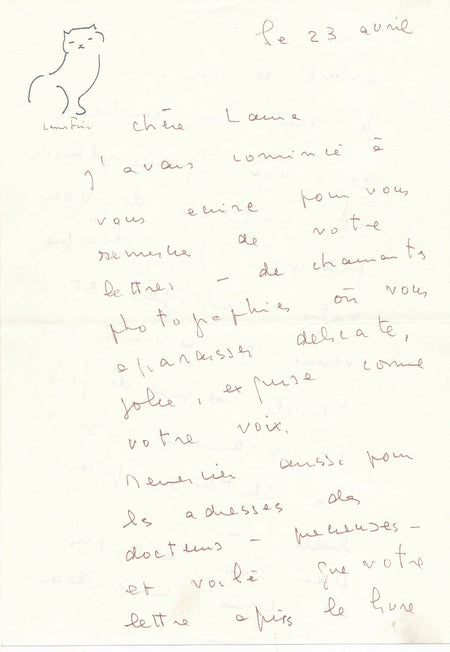 le 23 avril
chère Laura
j'avais commencé à
vous ecrire pour vous
remercier de votre
lettres – de charmants
photographies où vous
apparaissez delicate,
jolie, exquise comme
votre voix.
remercier aussi pour
les adresses des
docteurs – precieuses –
et voilà que votre
lettre après le livre